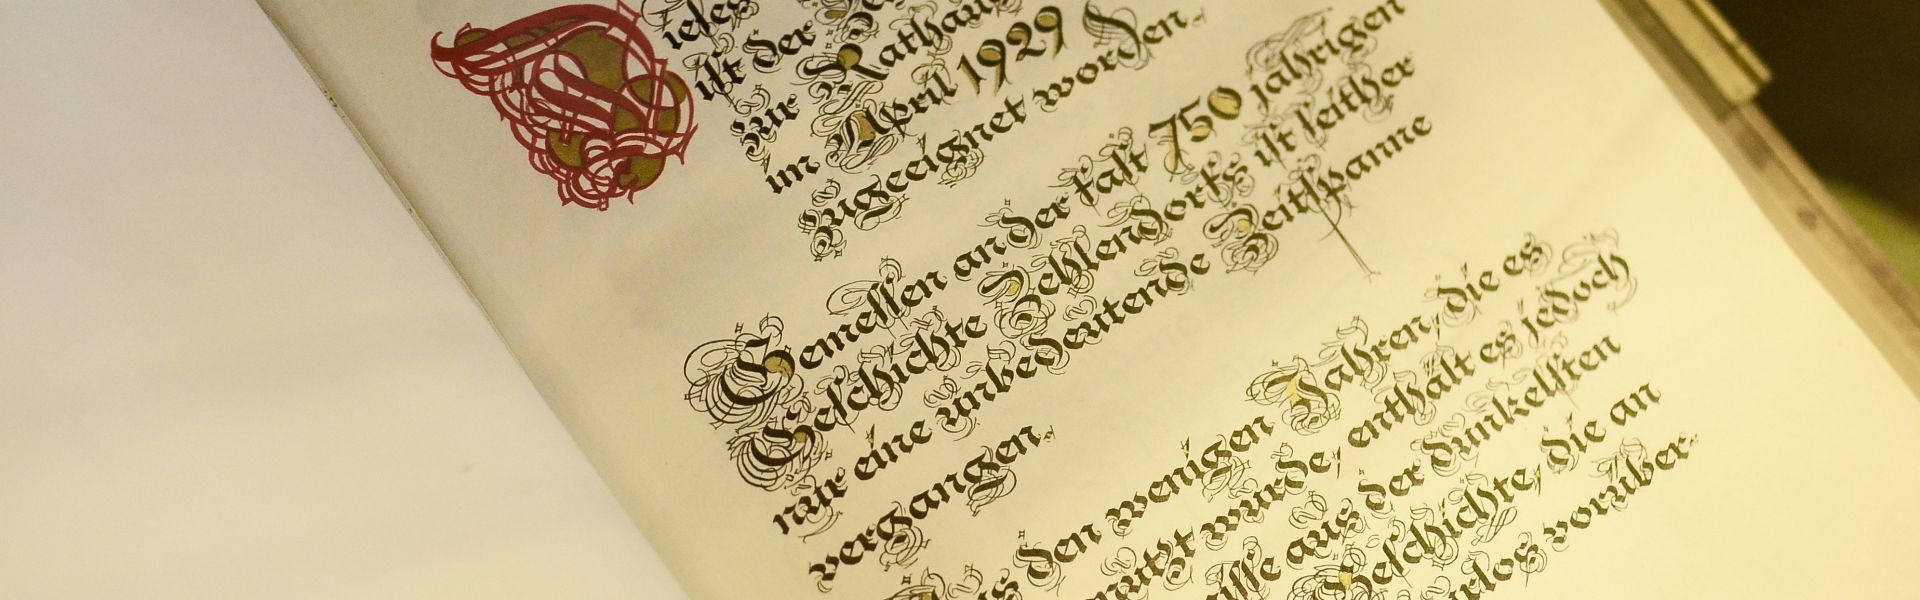 ieses
ist der
zur Rathaus
im April 1929
zugeeignet worden.
Gemessen an der fast 750 jährigen
Geschichte Zehlendorfs ist seither
nur eine unbedeutende Zeitspanne
vergangen.
den wenigen Jahren, die es
nutzt wurde, enthält es jedoch
aus der dunkelsten
Geschichte, die an
vorüber.